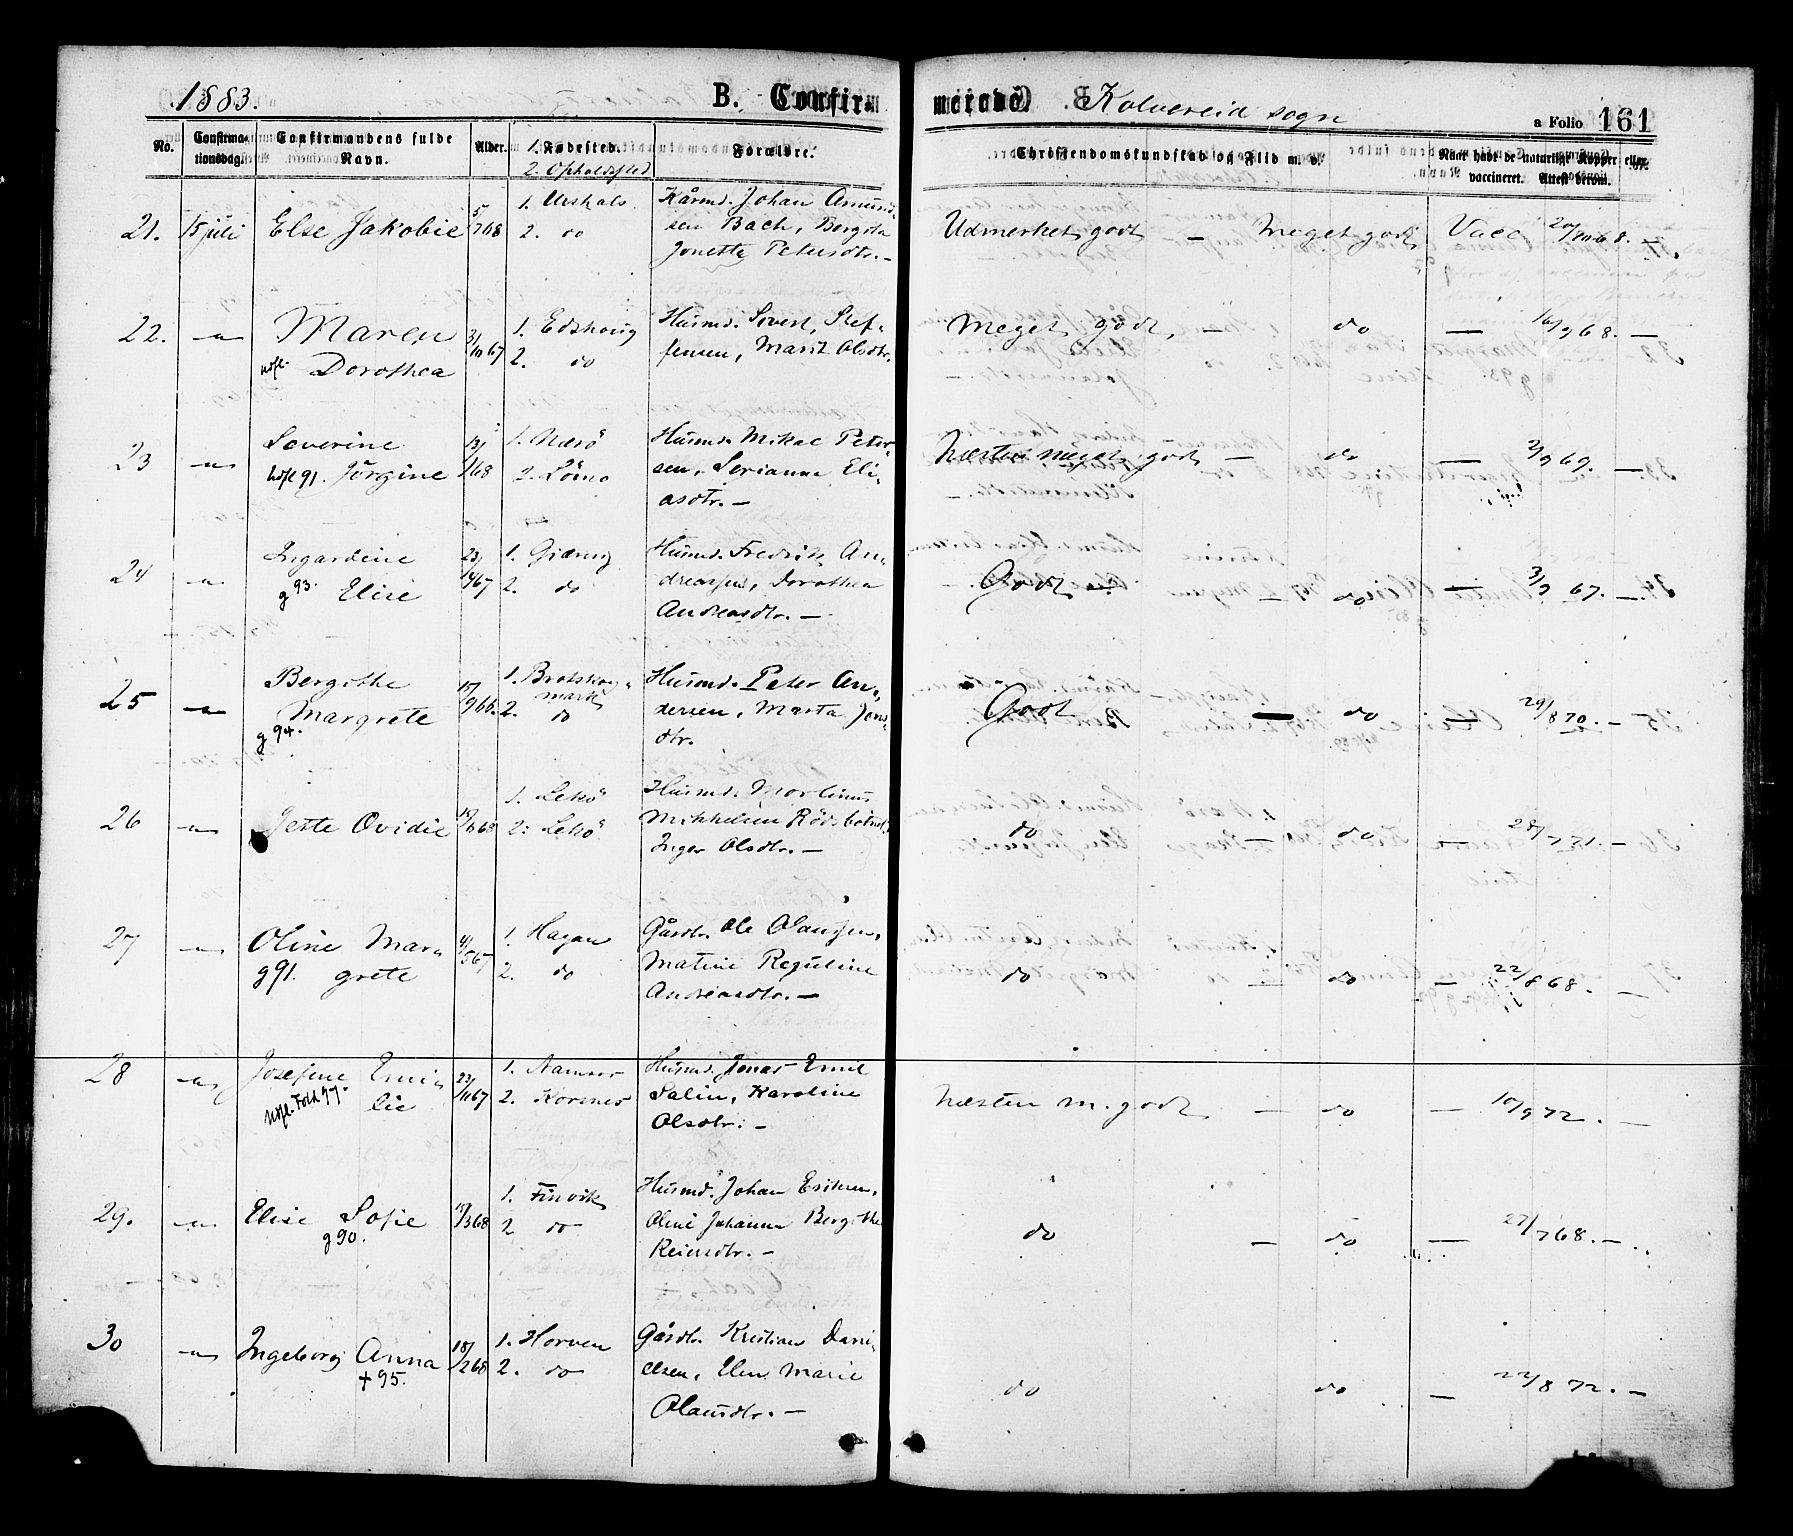 1883.
B. Confirmerede.
Kolvereid sogn
a Folio 161
No.
Confirmationsdag.
Confirmandens fulde Navn.
Alder.
1. Fødested.
2. Opholdssted
Forældre.
Christendomskundskab og Flid m. v.
Naar havt de naturlige Kopper eller vaccineret. Attest derom.
21. 15 juli Else Jakobie 5/7 68 1. 2. do
Johan Amundsen Bach, Bergitta
Jonetta Petersdtr. —
Udmerket godt — Meget godt Vacc 68. —
22. Maren 3/10 67 1. 2. do
Dorothea
Husmd. Sivert Steffensen, Marit Olsdtr.
Meget godt, — do — 16/9 68. —
23 Severine 1. Næsö
91. Jörgine 68 2.
Husmd. Mikal Petersen, Serianna Eliasdtr. —
Næsten meget godt — do — 2/9 69. —
24 Ingardine 1.
g 93. Elise 67 2. do
Husmd. Fredrik Andreassen, Dorothea
Andreasdtr. —
Godt — do — 3/9 67. —
25 Bergithe 1.
Margrete 2. do
g 94.
Husmd. Peter Andersen, Marta Jonsdtr.
Godt — do — 29/8 70. —
26 Jette Ovidie 68 1. Lekö
2. Lekö
Husmd. Mortinus
Mikkelsen
Inger Olsdtr. —
do — do — 71. —
27 Oline Mar- 67 1. Hagan
g 91. grete 2. do
Gårdbr. Ole Olaussen,
Matine Reguline
Andreasdtr. —
do do — 22/8 68. —
28 Josefine Emi- 23/11 67 1. Namsos
lie 2.
Husmd. Jonas Emil
Salin, Karoline
Olsdtr. —
Næsten m. godt — do — 10/9 72. —
29. Elise Sofie 68 1. Finvik
g 90. 2 do
Husmd. Johan Eriksen,
Oline Johanna Bergithe
Reinsdtr. —
do — do — 27/7 68. —
30 Ingeborg Anna 18/2 68 1. Horven
+ 95. 2. do
Gårdbr. Kristian Danielsen, Elen Marie
Olausdtr. —
do do — 22/8 72. —